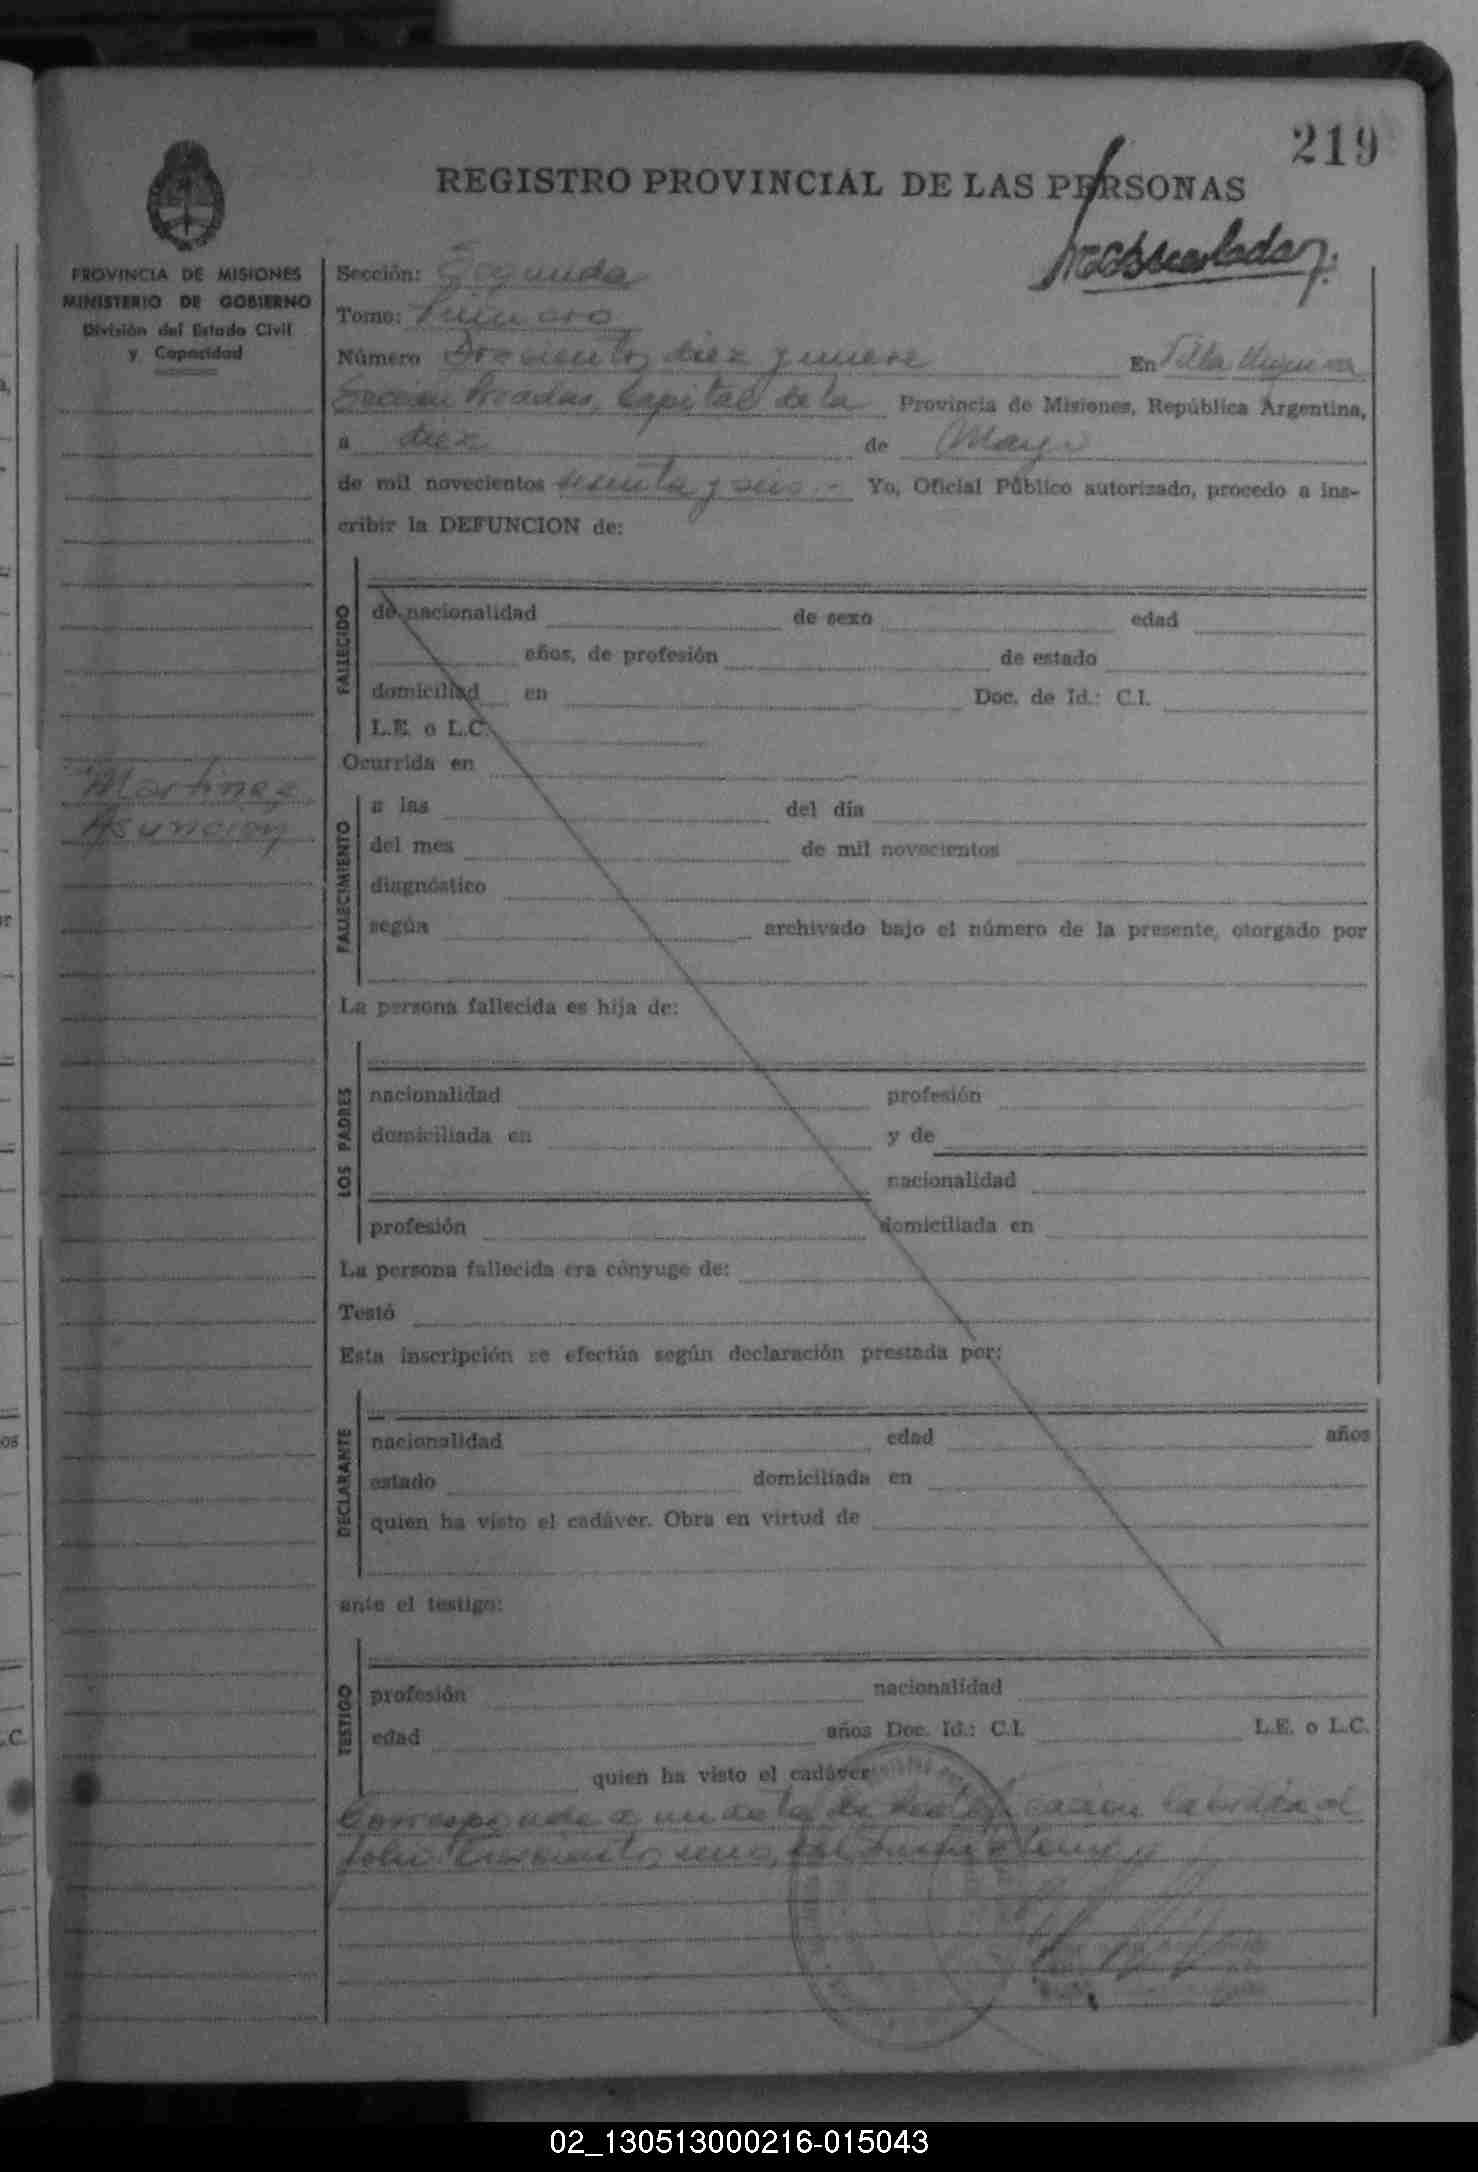 219
REGISTRO PROVINCIAL DE LAS PERSONAS
PROVINCIA DE MISIONES
MINISTERIO DE GOBIERNO
División del Estado Civil
y Capacidad
Sección: Segunda
Tomo: Primero
Número Doscientos diez y nueve En Villa
Sección Posadas, Capital de la Provincia de Misiones, República Argentina,
a diez de Mayo
de mil novecientos sesenta y seis.- Yo, Oficial Público autorizado, procedo a ins-
cribir la DEFUNCION de:
FALLECIDO
de nacionalidad de sexo edad
años, de profesión de estado
domiciliad en Doc. de Id.: C.I.
L.E. o L.C.
Ocurrida en
Martinez
Asuncion
FALLECIMIENTO
a las del día
del mes de mil novecientos
diagnóstico
según archivado bajo el número de la presente, otorgado por
La persona fallecida es hija de:
LOS PADRES
nacionalidad profesión
domiciliada en y de
nacionalidad
profesión domiciliada en
La persona fallecida era cónyuge de:
Testó
Esta inscripción se efectúa según declaración prestada por:
DECLARANTE
nacionalidad edad años
estado domiciliada en
quien ha visto el cadáver. Obra en virtud de
ante el testigo:
TESTIGO
profesión nacionalidad
edad años Doc. Id.: C.I. L.E. o L.C.
quien ha visto el cadáver
Corresponde a un acta de labrada al
folio
02_130513000216-015043